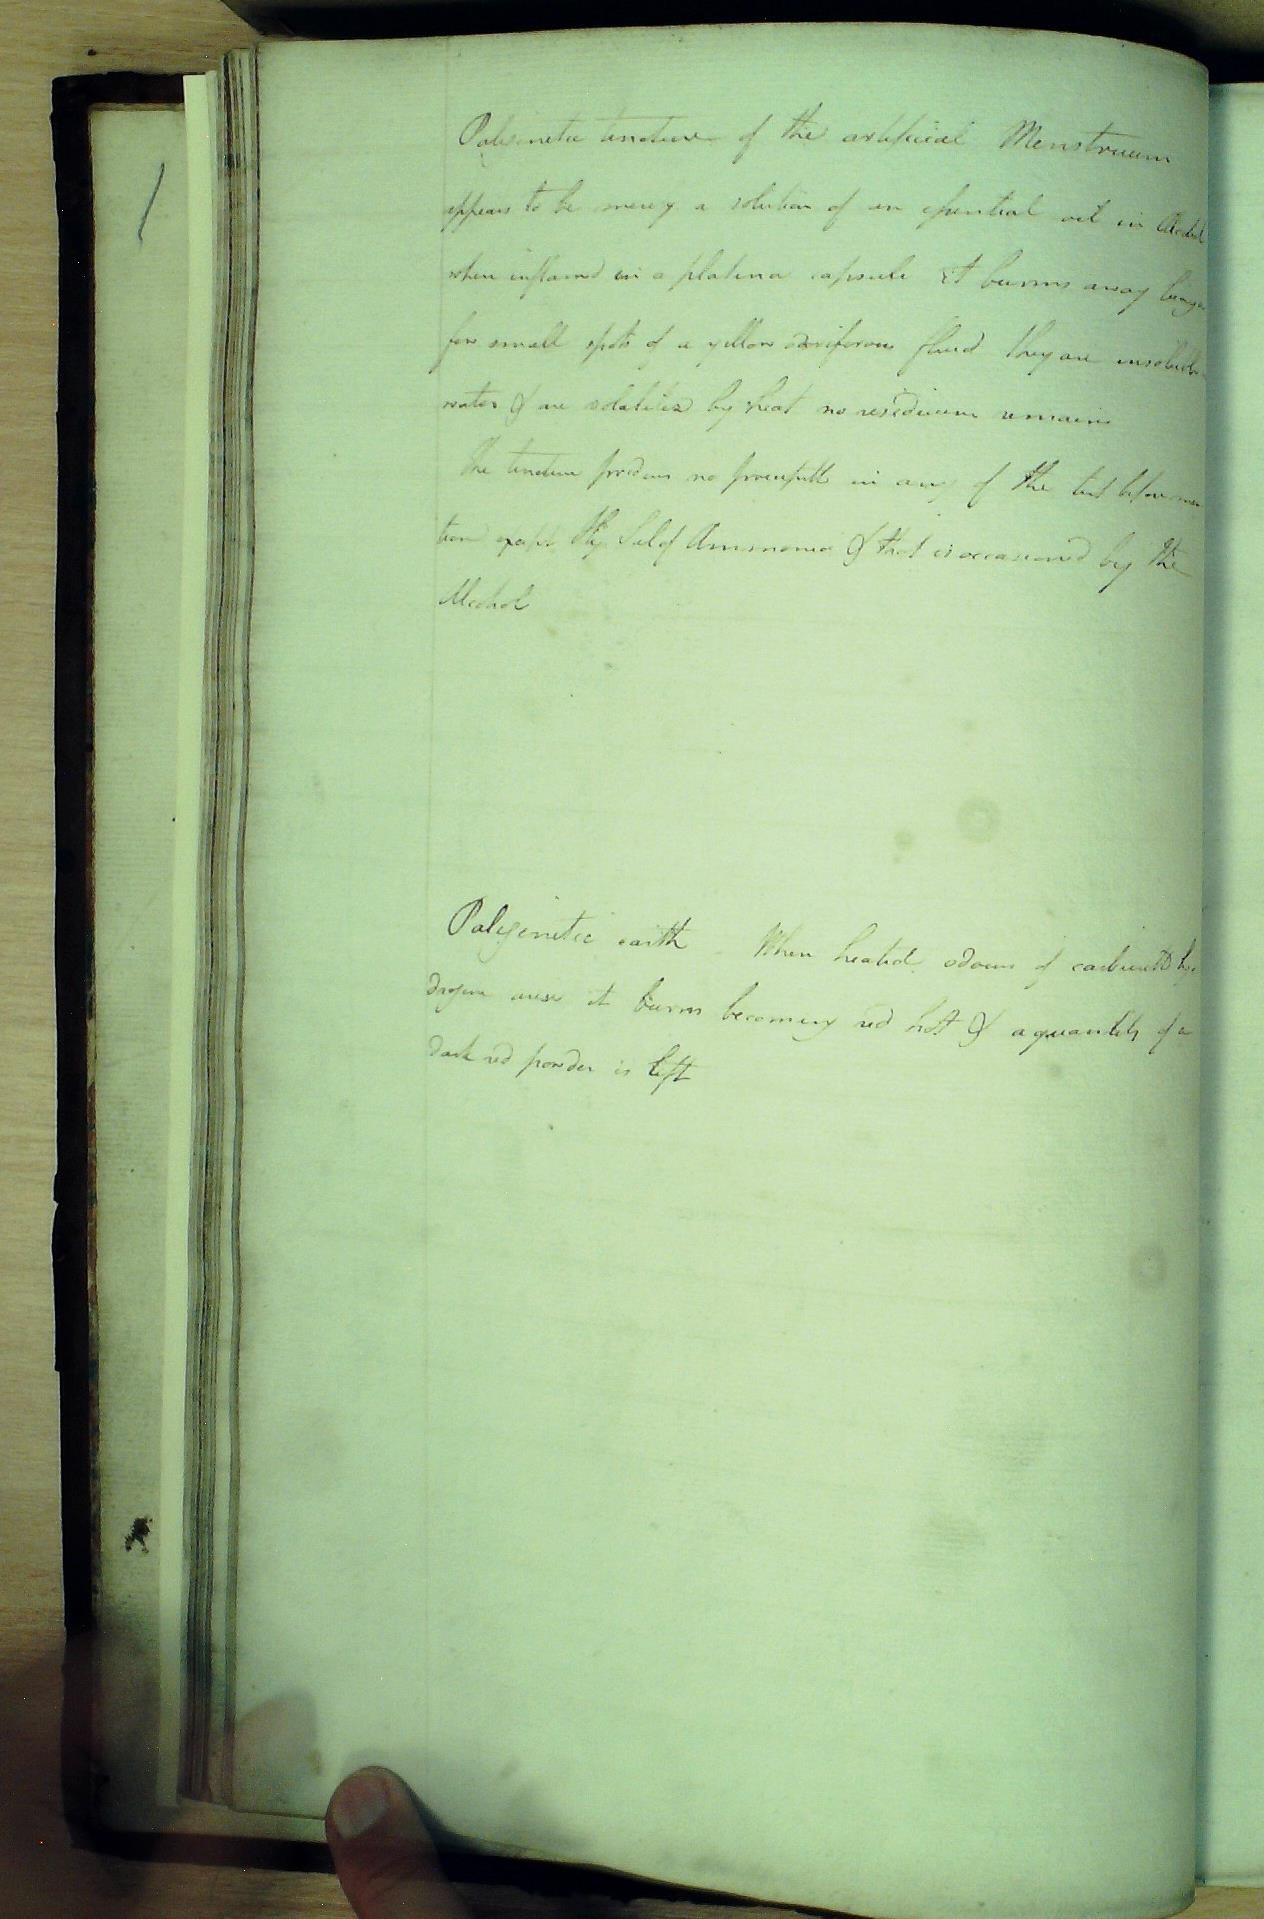 Paligenetic tincture of the artificial Menstruum
appears to be merely a solution of an essential oil in Alcohol
when inflamed in a platina capsule it burns away
few small spots of a yellow odoriferous fluid they are insoluble
water & are volatilized by heat no residuum remains
The tincture produces no precipitate in any of the test before men
tion except Hy Sul of Ammonia & that is occasioned by the
Alcohol
Paligenetic earth When heated odours of carburetted hy
drogen arise it burns becoming red hot & a quantity of a
dark red powder is left